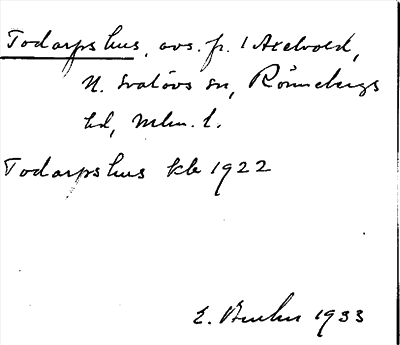 Todarpshus, avs. fr. 1 Axelvold,
N. Svalövs sn, Rönnebergs
hd, Mlm. l.
Todarpshus kb 1922
E. 1933